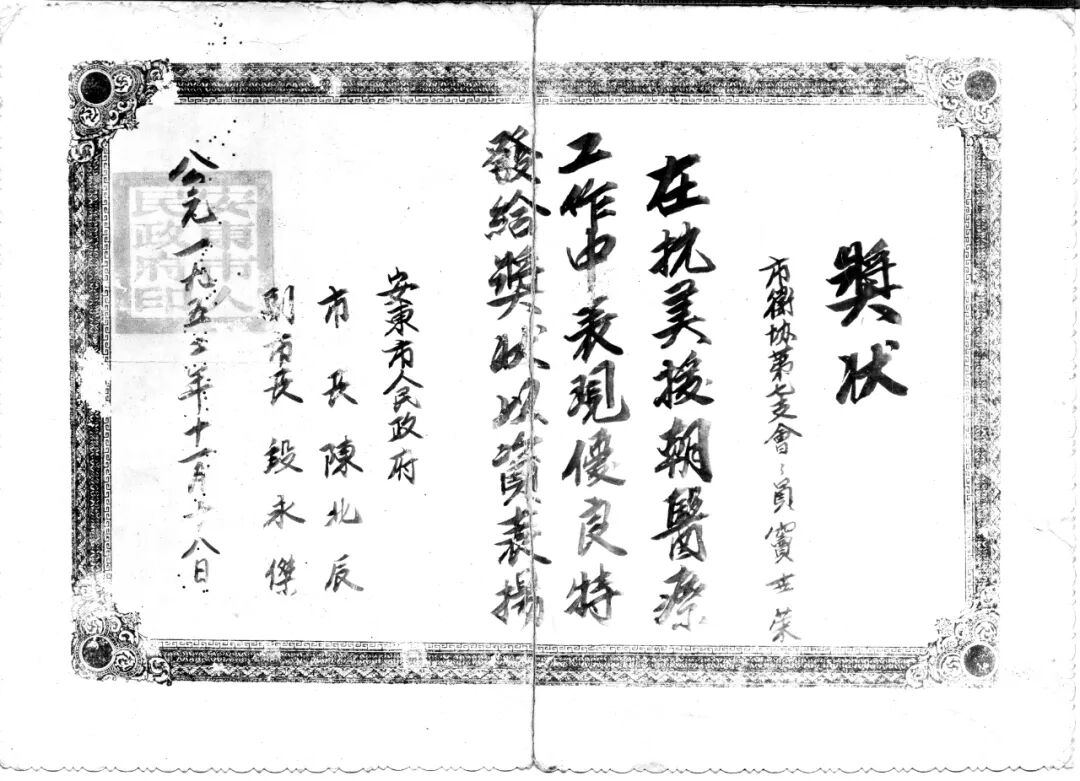 獎狀
市衛協第七支會々員竇世榮
在抗美援朝醫療
工作中表現優良特
發給獎狀以資表揚
安東市人民政府
市長 陳北辰
副市長 段永傑
公元一九五 年十一月 八日
安東市人民政府印